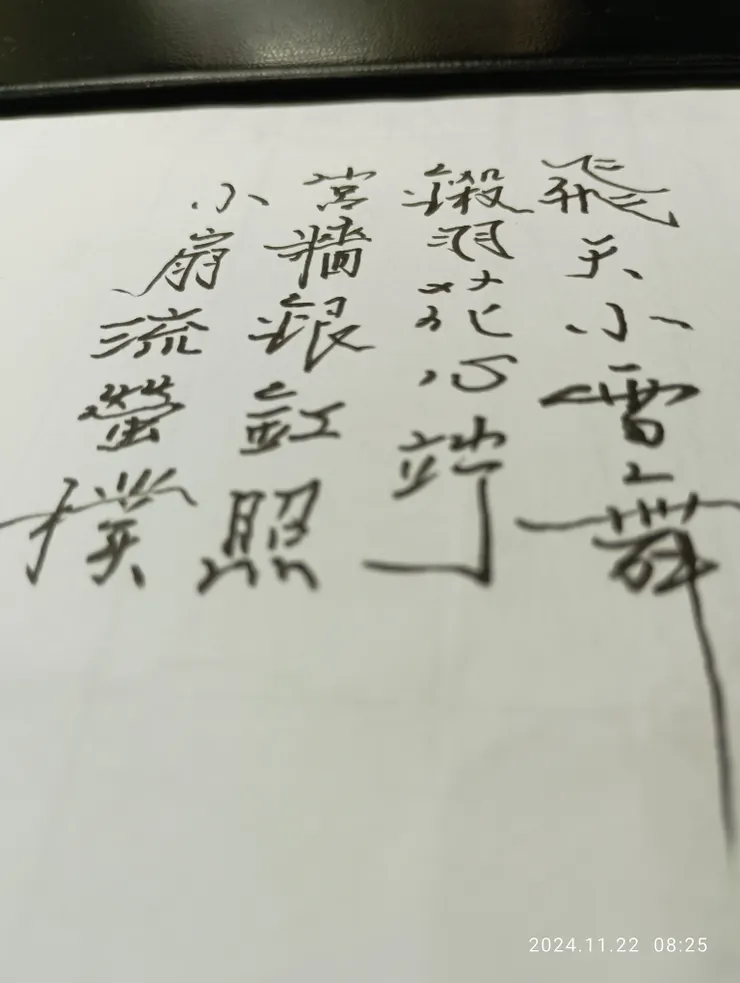 飛天小雪舞
鎩羽花心竚
宮牆銀缸照
小扇流螢撲
2024.11.22 08:25